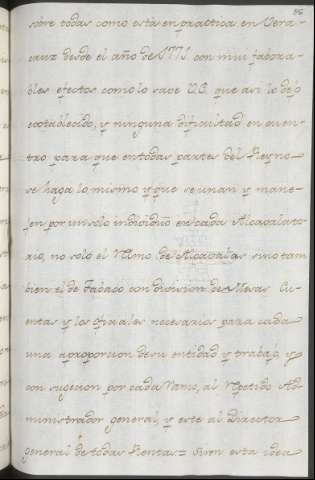 86
sobre todas como está en practica en Vera-
cruz desde el año de 1771. con mui fabora-
bles efectos como lo save V.E. que asi lo dejó
establecido, y ninguna dificultad encuen-
tro para que entodas partes del Reyno
se haga lo mismo y que se unan y mane-
jen por un solo individuo en cada Alcavalato-
rio, no solo el Ramo de Alcavalas sino tam
bien el de Tabaco con division de Mesas Cu-
entas y los oficiales necesarios para cada
una aproporcion de su entidad y trabajo, y
con sugecion por cada Ramo, al repetido Ad-
ministrador general, y este al Director
general de todas Rentas = Si en esta idea